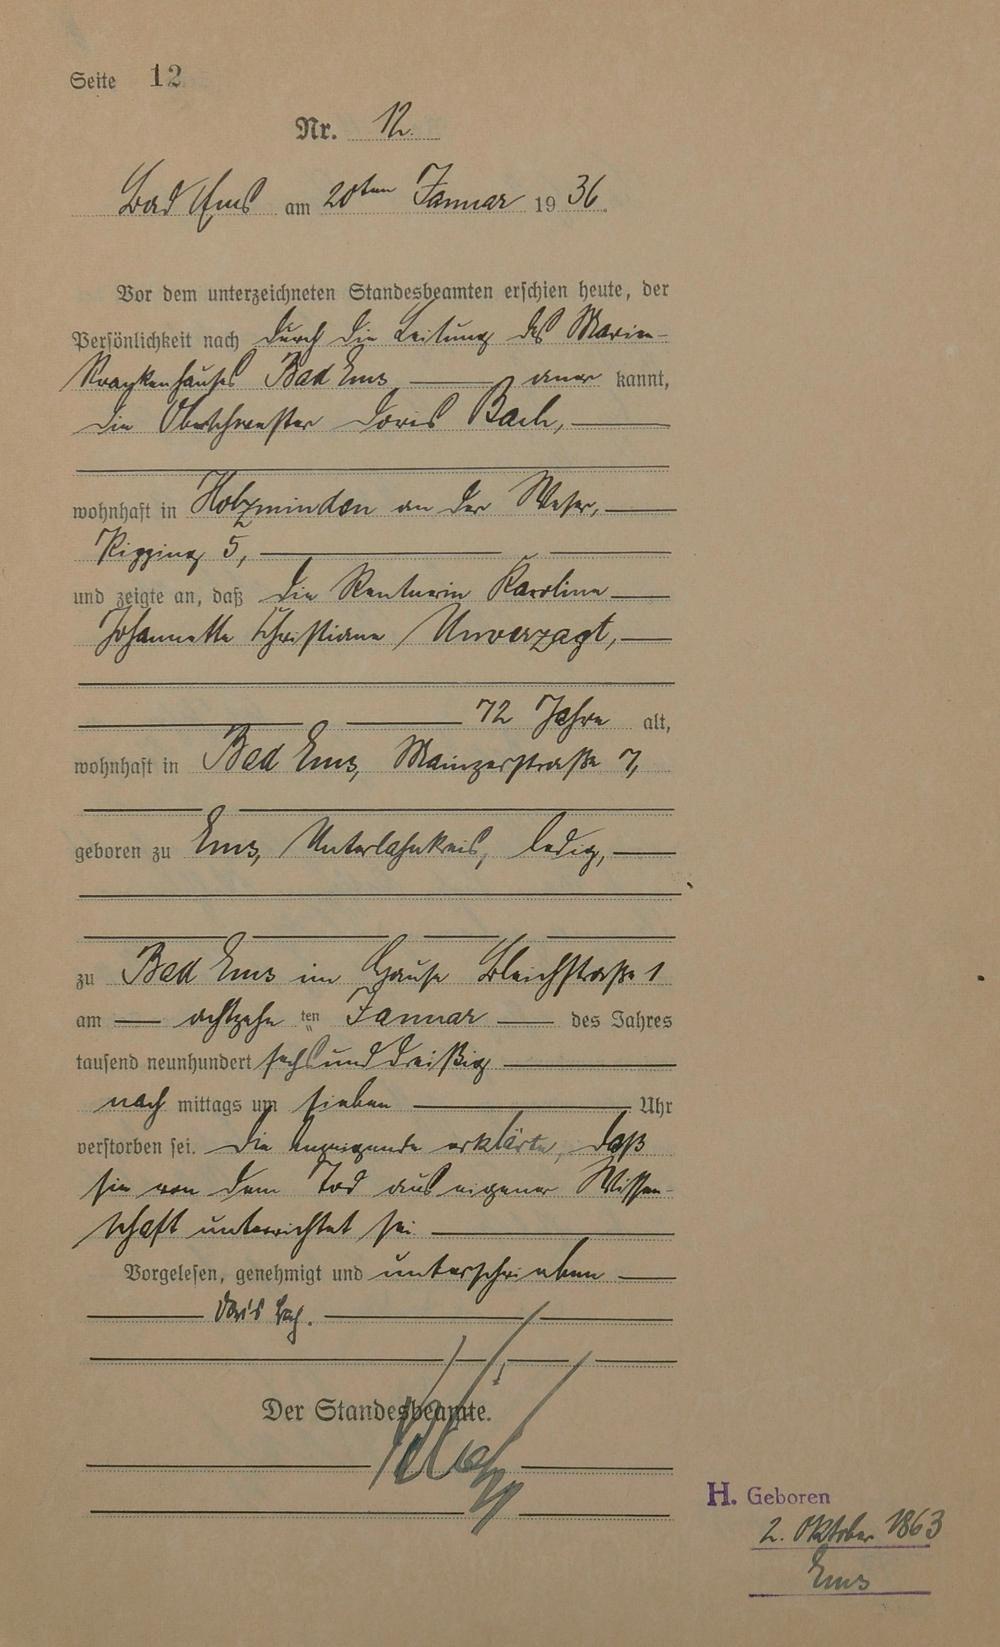 Seite 12
Nr. 12.
Bad Ems am 20ten Januar 1936.
Vor dem unterzeichneten Standesbeamten erschien heute, der
Persönlichkeit nach durch die Leitung des Marien-
Krankenhauses Bad Ems aner kannt,
die Oberschwester Doris Bach,
wohnhaft in Holzminden an der Weser,
5,
und zeigte an, daß die Rentnerin Karoline
Johannette Christiane Unverzagt,
72 Jahre alt,
wohnhaft in Bad Ems, Mainzerstraße 7,
geboren zu Ems, Unterlahnkreis, ledig,
zu Bad Ems im Hause Bleichstraße 1
am achtzehn ten Januar des Jahres
tausend neunhundert sechsunddreißig
nach mittags um sieben Uhr
verstorben sei. Die Anzeigende erklärte, daß
sie von dem Tod aus eigener Wissen-
schaft unterrichtet sei
Vorgelesen, genehmigt und unterschrieben
Doris Bach.
Der Standesbeamte.
H. Geboren
2. Oktober 1863
Ems